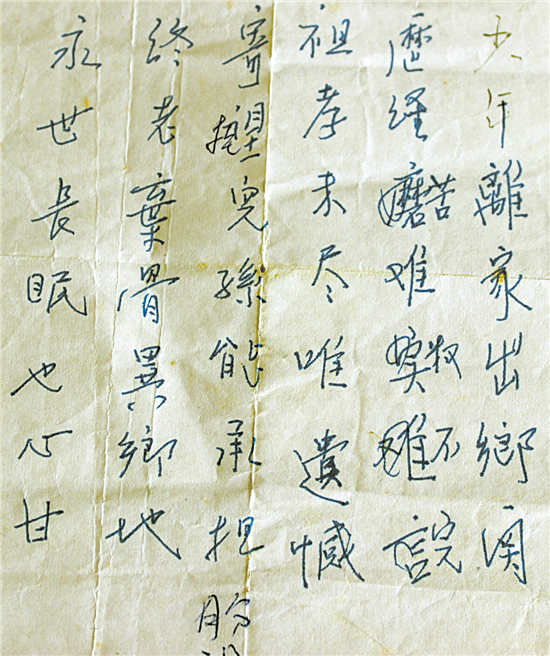 少年離家出鄉関
歷経磨苦难難不
祖孝未尽唯遺憾
寄望兒孫能承担
終老棄骨異鄉地
永世長眠也心甘